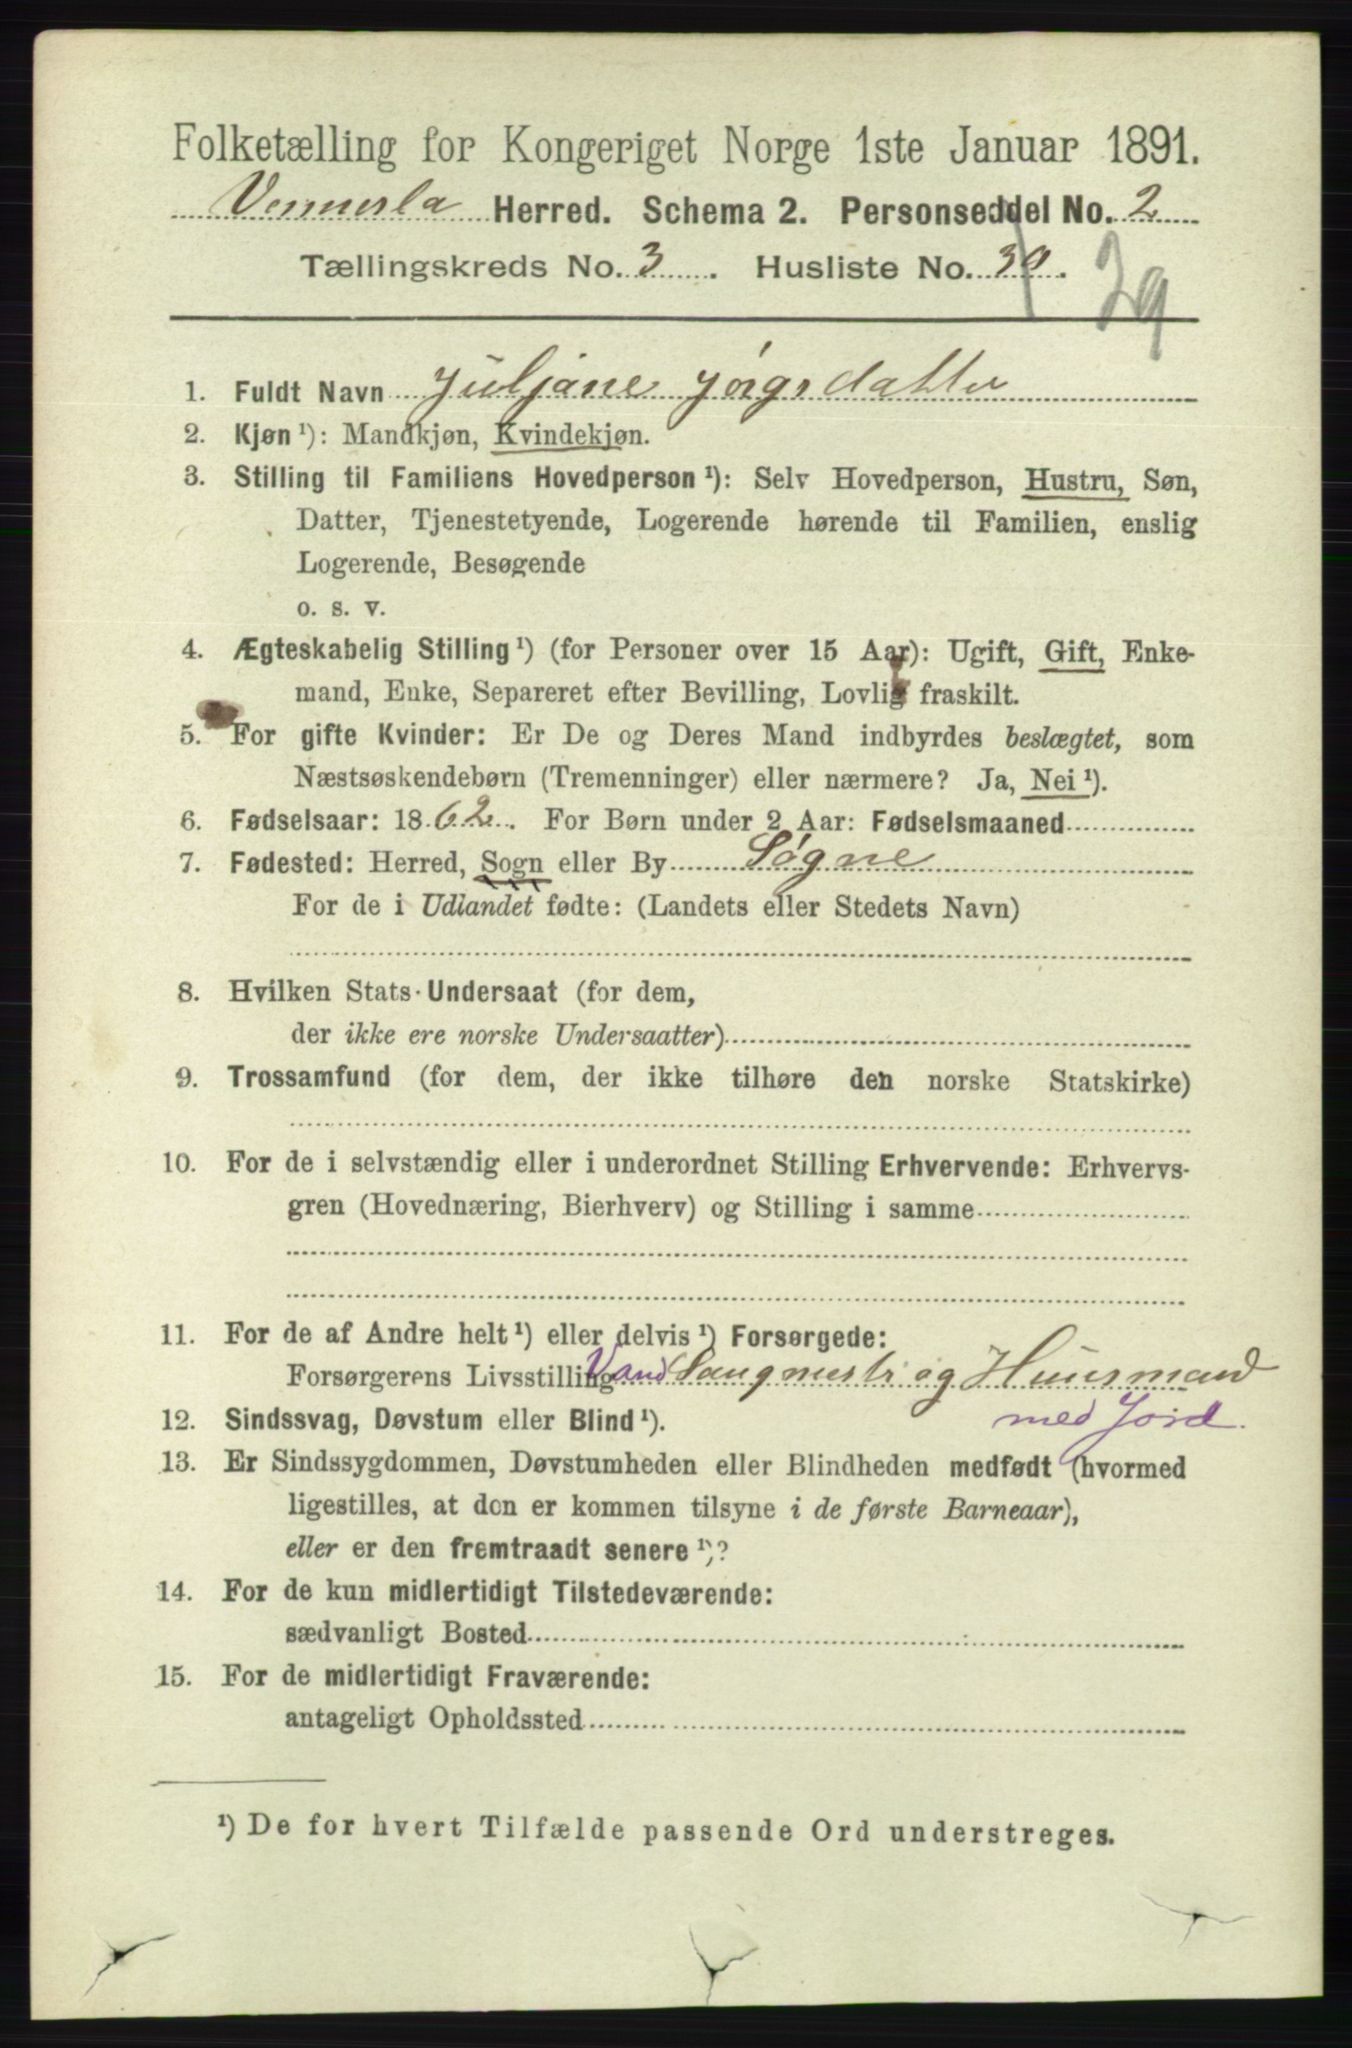 Folketælling for Kongeriget Norge 1ste Januar 1891.
Vennesla Herred. Schema 2. Personseddel No. 2
Tællingskreds No. 3. Husliste No. 30.
29
1. Fuldt Navn Juljane Jörgsdatter
2. Kjøn ¹): Mandkjøn, Kvindekjøn.
3. Stilling til Familiens Hovedperson ¹): Selv Hovedperson, Hustru, Søn,
Datter, Tjenestetyende, Logerende hørende til Familien, enslig
Logerende, Besøgende
o. s. v.
4. Ægteskabelig Stilling ¹) (for Personer over 15 Aar): Ugift, Gift, Enke-
mand, Enke, Separeret efter Bevilling, Lovlig fraskilt.
5. For gifte Kvinder: Er De og Deres Mand indbyrdes beslægtet, som
Næstsøskendebørn (Tremenninger) eller nærmere? Ja, Nei ¹).
6. Fødselsaar: 1862. For Børn under 2 Aar: Fødselsmaaned
7. Fødested: Herred, Sogn eller By Søgne
For de i Udlandet fødte: (Landets eller Stedets Navn)
8. Hvilken Stats-Undersaat (for dem,
der ikke ere norske Undersaatter)
9. Trossamfund (for dem, der ikke tilhøre den norske Statskirke)
10. For de i selvstændig eller i underordnet Stilling Erhvervende: Erhvervs-
gren (Hovednæring, Bierhverv) og Stilling i samme
11. For de af Andre helt ¹) eller delvis ¹) Forsørgede:
Forsørgerens Livsstilling Vand Saugmestr og Huusmand
med Jord.
12. Sindssvag, Døvstum eller Blind ¹).
13. Er Sindssygdommen, Døvstumheden eller Blindheden medfødt (hvormed
ligestilles, at den er kommen tilsyne i de første Barneaar),
eller er den fremtraadt senere ¹)?
14. For de kun midlertidigt Tilstedeværende:
sædvanligt Bosted
15. For de midlertidigt Fraværende:
antageligt Opholdssted
¹) De for hvert Tilfælde passende Ord understreges.